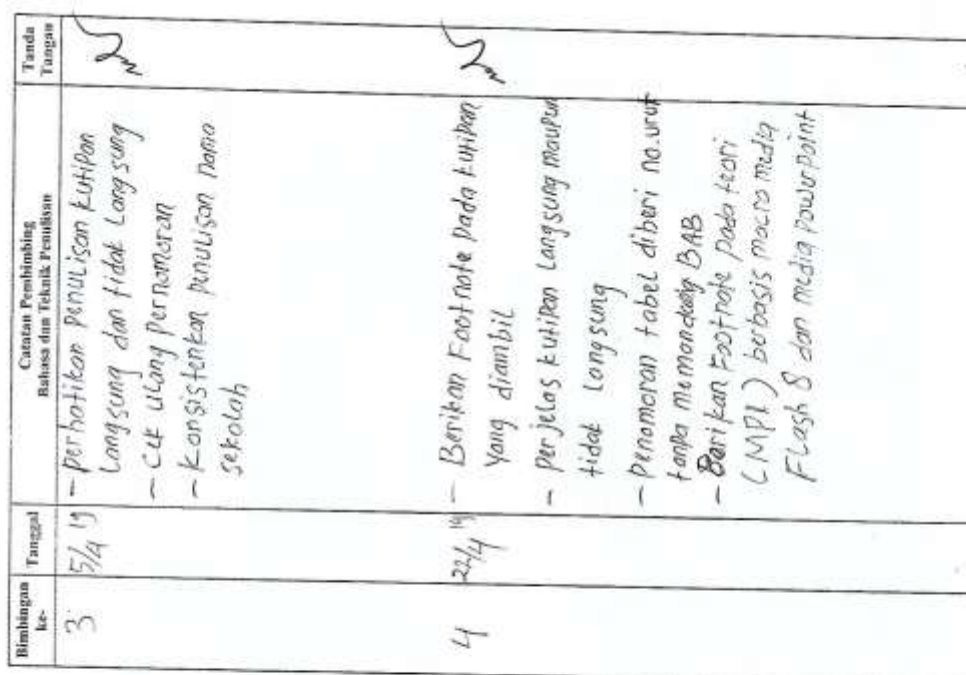 Bimbingan
ke-
Tanggal
Catatan Pembimbing
Bahasa dan Teknik Penulisan
Tanda
Tangan
3.
5/4 19
- perhatikan penulisan kutipan
langsung dan tidak langsung
- cek ulang pernomoran
- Konsistenkan penulisan nama
sekolah
4
22/4 19
- Berikan Footnote pada kutipan
yang diambil
- perjelas kutipan langsung maupun
tidak langsung
- penomoran tabel diberi no.urut
tanpa memandang BAB
- Berikan Footnote pada teori
(MPI) berbasis macro media
Flash 8 dan media powerpoint